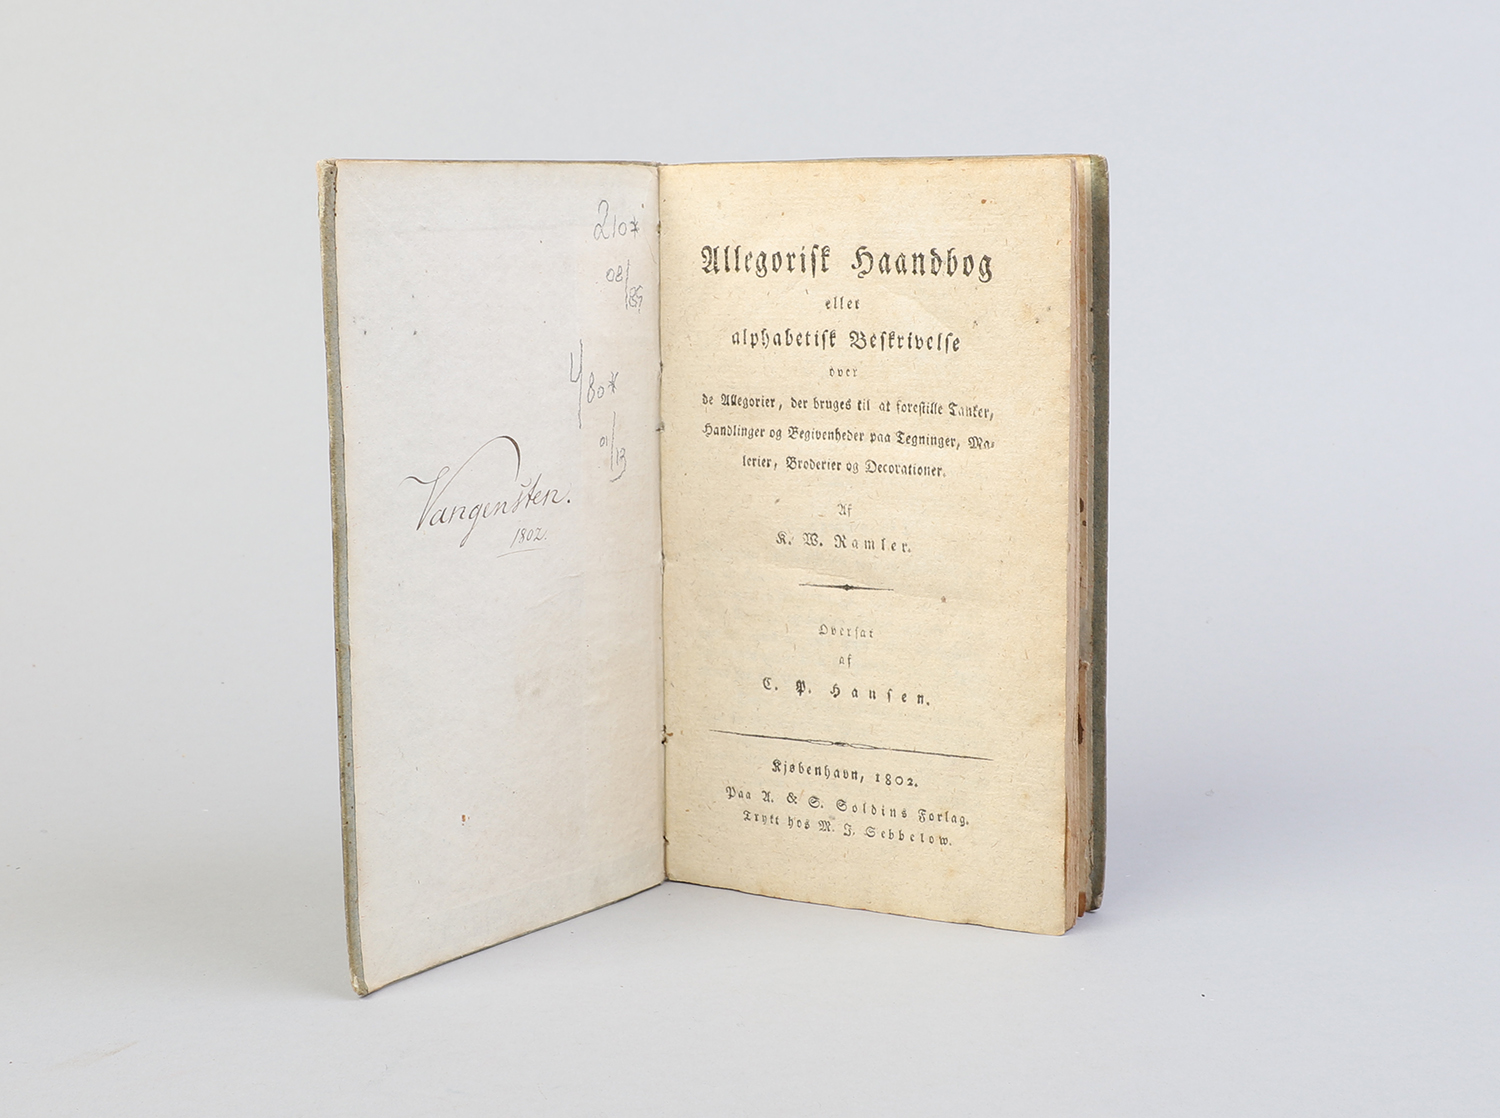 210*
08/85
4/80*
01/13
Vangensten.
1802.
Allegorisk Haandbog
eller
alphabetisk Beskrivelse
over
de Allegorier, der bruges til at forestille Tanker,
Handlinger og Begivenheder paa Tegninger, Ma-
lerier, Broderier og Decorationer.
Af
K. W. Ramler.
Oversat
af
C. P. Hansen.
Kjøbenhavn, 1802.
Paa A. & S. Soldins Forlag.
Trykt hos M. J. Sebbelow.